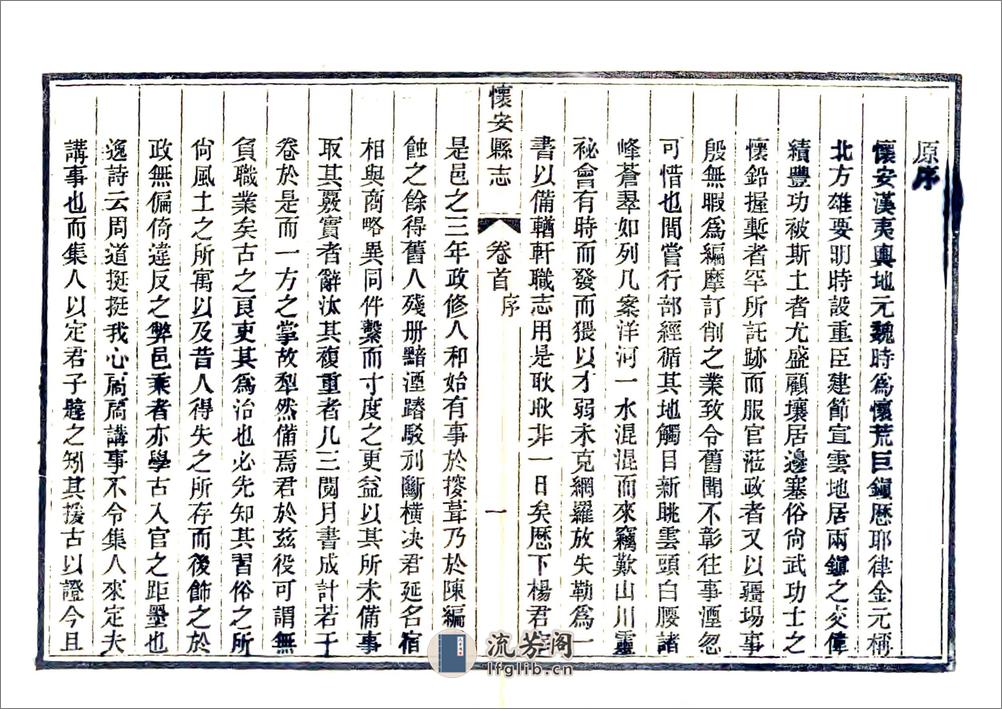 原序
懷安漢夷輿地元魏時爲懷荒巨鎭歴耶律金元稱
北方雄要明時設重臣建節宣雲地居兩鎭之交偉
績豐功被斯土者尤盛顧壤居邊塞俗尙武功士之
懷鉛握槧者罕所託跡而服官蒞政者又以疆埸事
殷無暇爲編摩訂削之業致令舊聞不彰往事湮忽
可惜也間嘗行部經循其地觸目新眺雲頭白腰諸
峰蒼翠如列几案洋河一水混混而來竊歎山川靈
祕會有時而發而猥以才弱未克網羅放失勒爲一
書以備輶軒職志用是耿耿非一日矣歴下楊君
懷安縣志
卷首
序
一
是邑之三年政修人和始有事於搜葺乃於陳編
蝕之餘得舊人殘册黯湮踏駁刓斷橫决君延名宿
相與商略異同件繫而寸度之更益以其所未備事
取其覈實者辭汰其複重者凡三閱月書成計若干
卷於是而一方之掌故犁然備焉君於兹役可謂無
負職業矣古之良吏其爲治也必先知其習俗之所
尙風土之所寓以及昔人得失之所存而後飾之於
政無偏倚違反之弊邑乘者亦學古入官之距壘也
逸詩云周道挺挺我心扃扃講事不令集人來定夫
講事也而集人以定君子韙之矧其援古以證今且
流芳阁
lfglib.cn